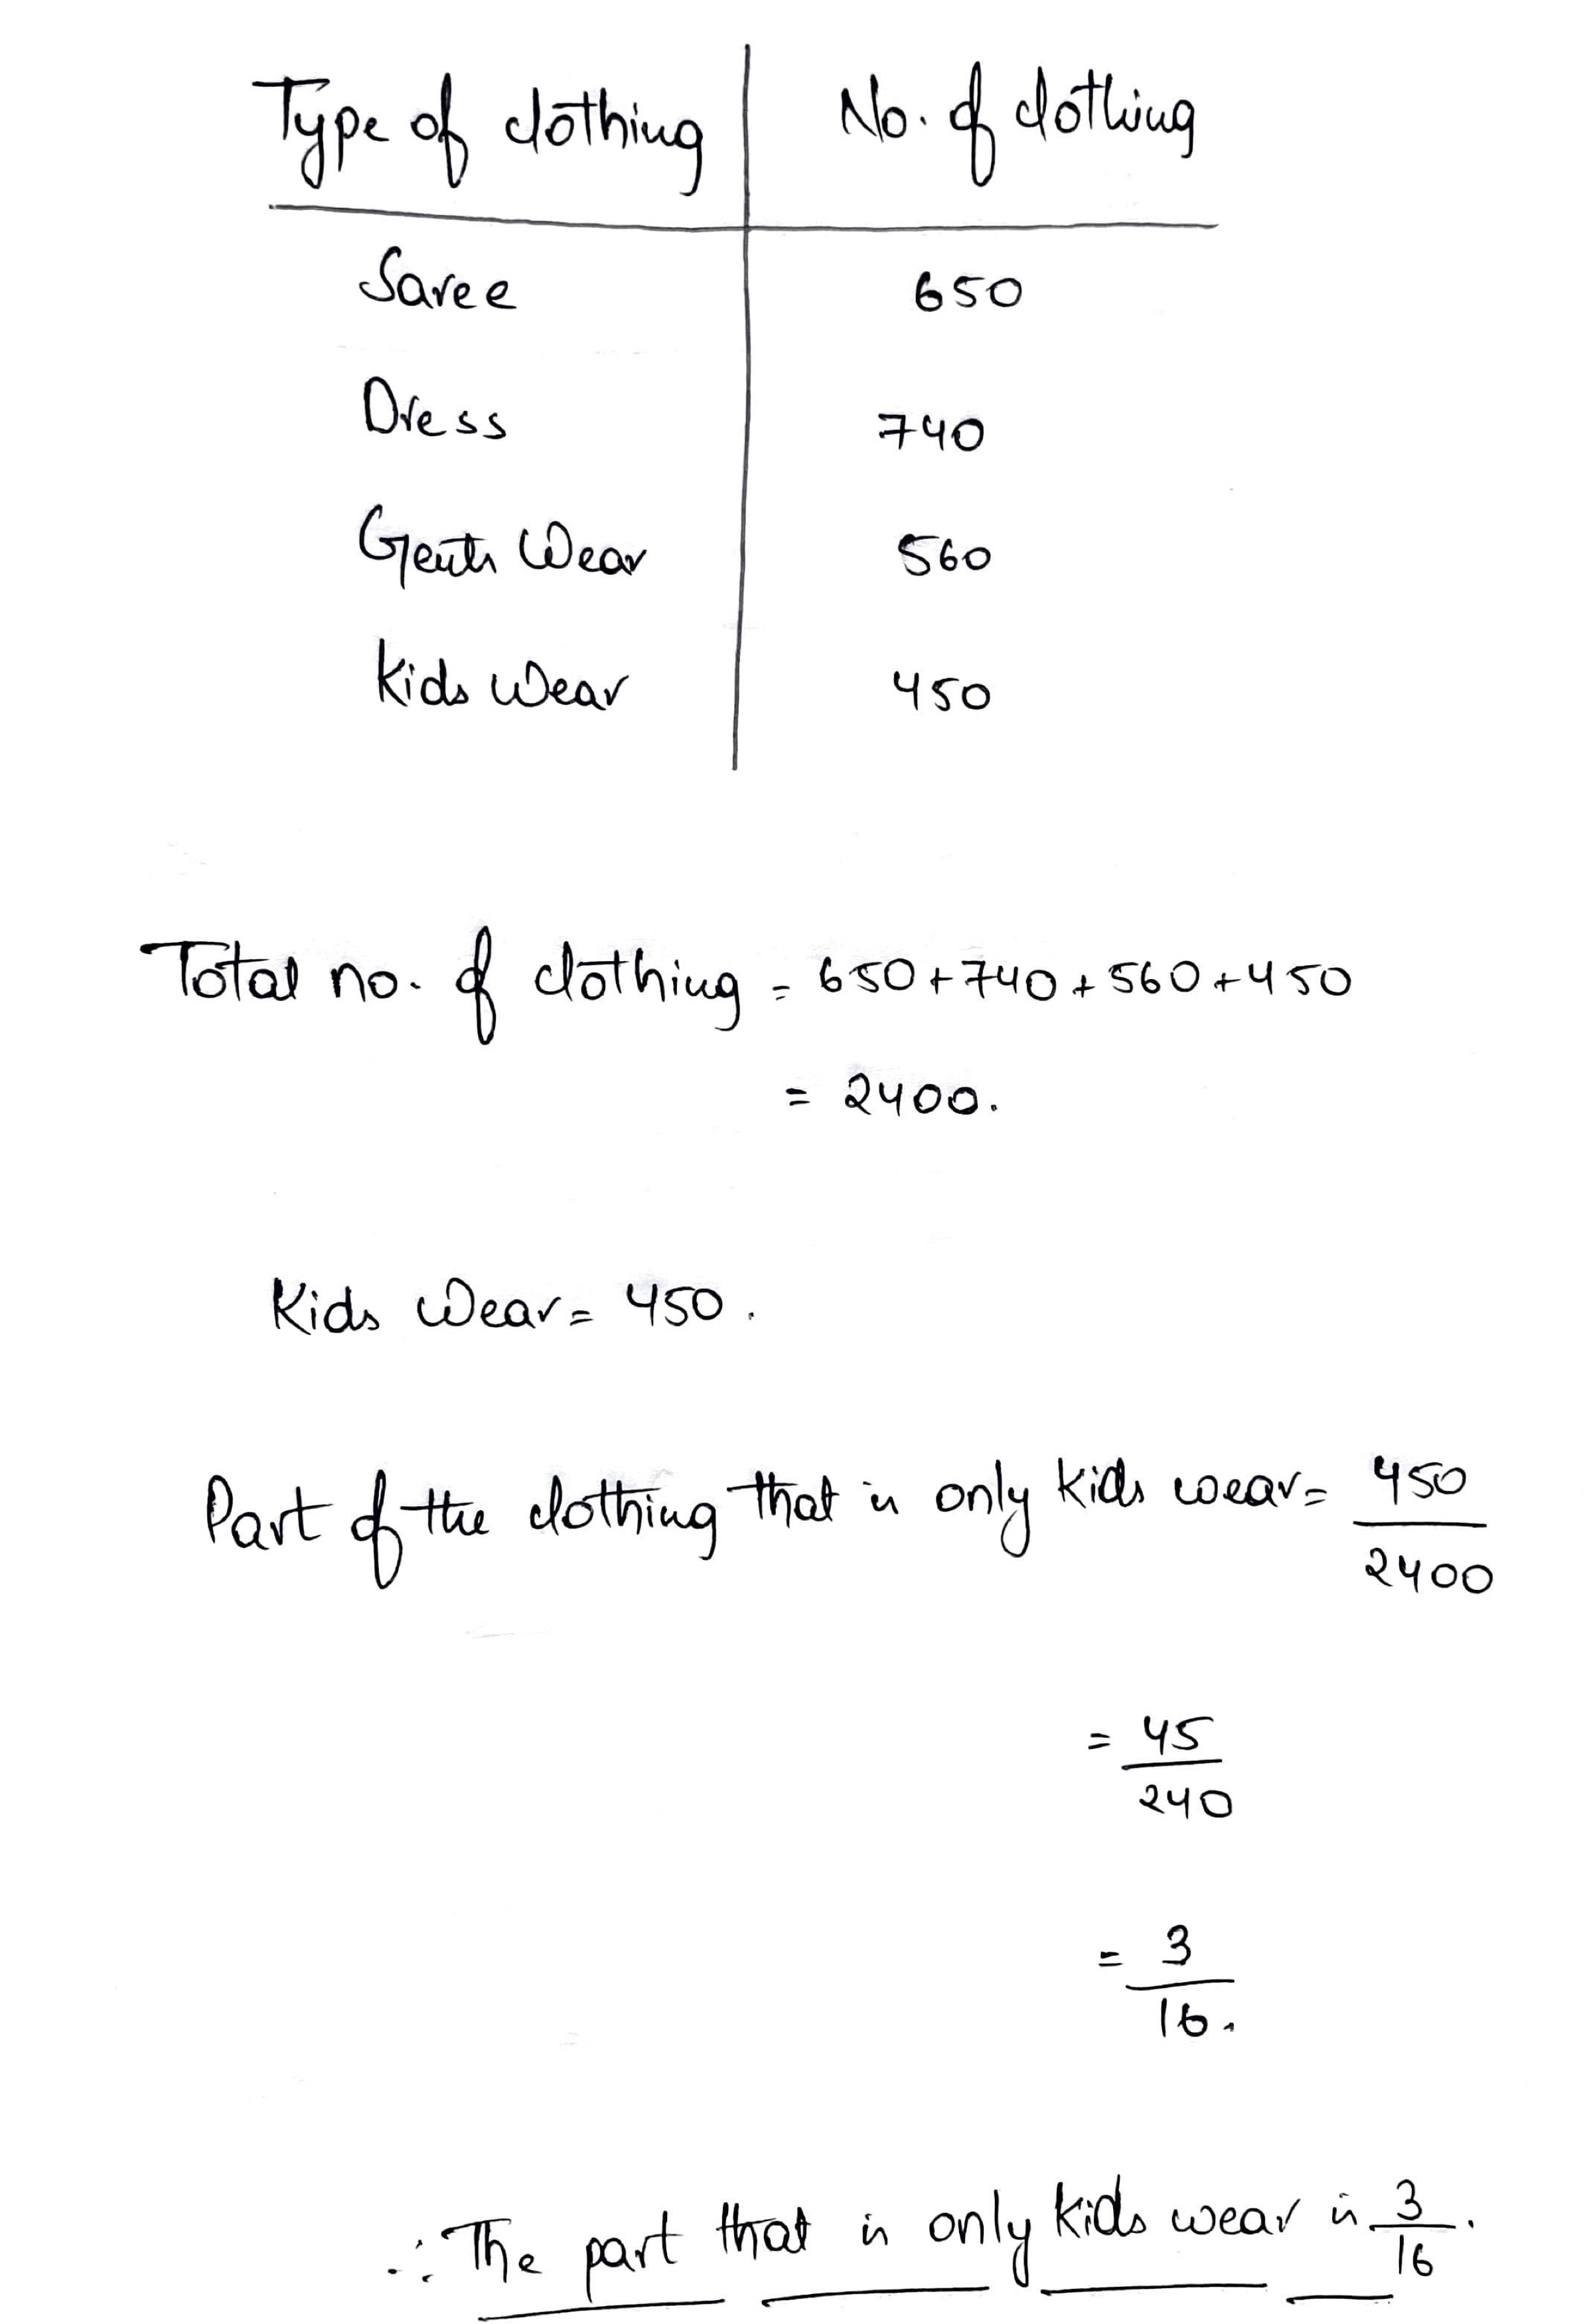 Type of clothing No. of clothing
Saree 650
Dress 740
Gents Wear 560
Kids Wear 450
Total no. of clothing = 650+740+560+450
= 2400.
Kids Wear = 450.
Part of the clothing that is only kids wear = 450/2400
= 45/240
= 3/16.
∴ The part that is only kids wear is 3/16.